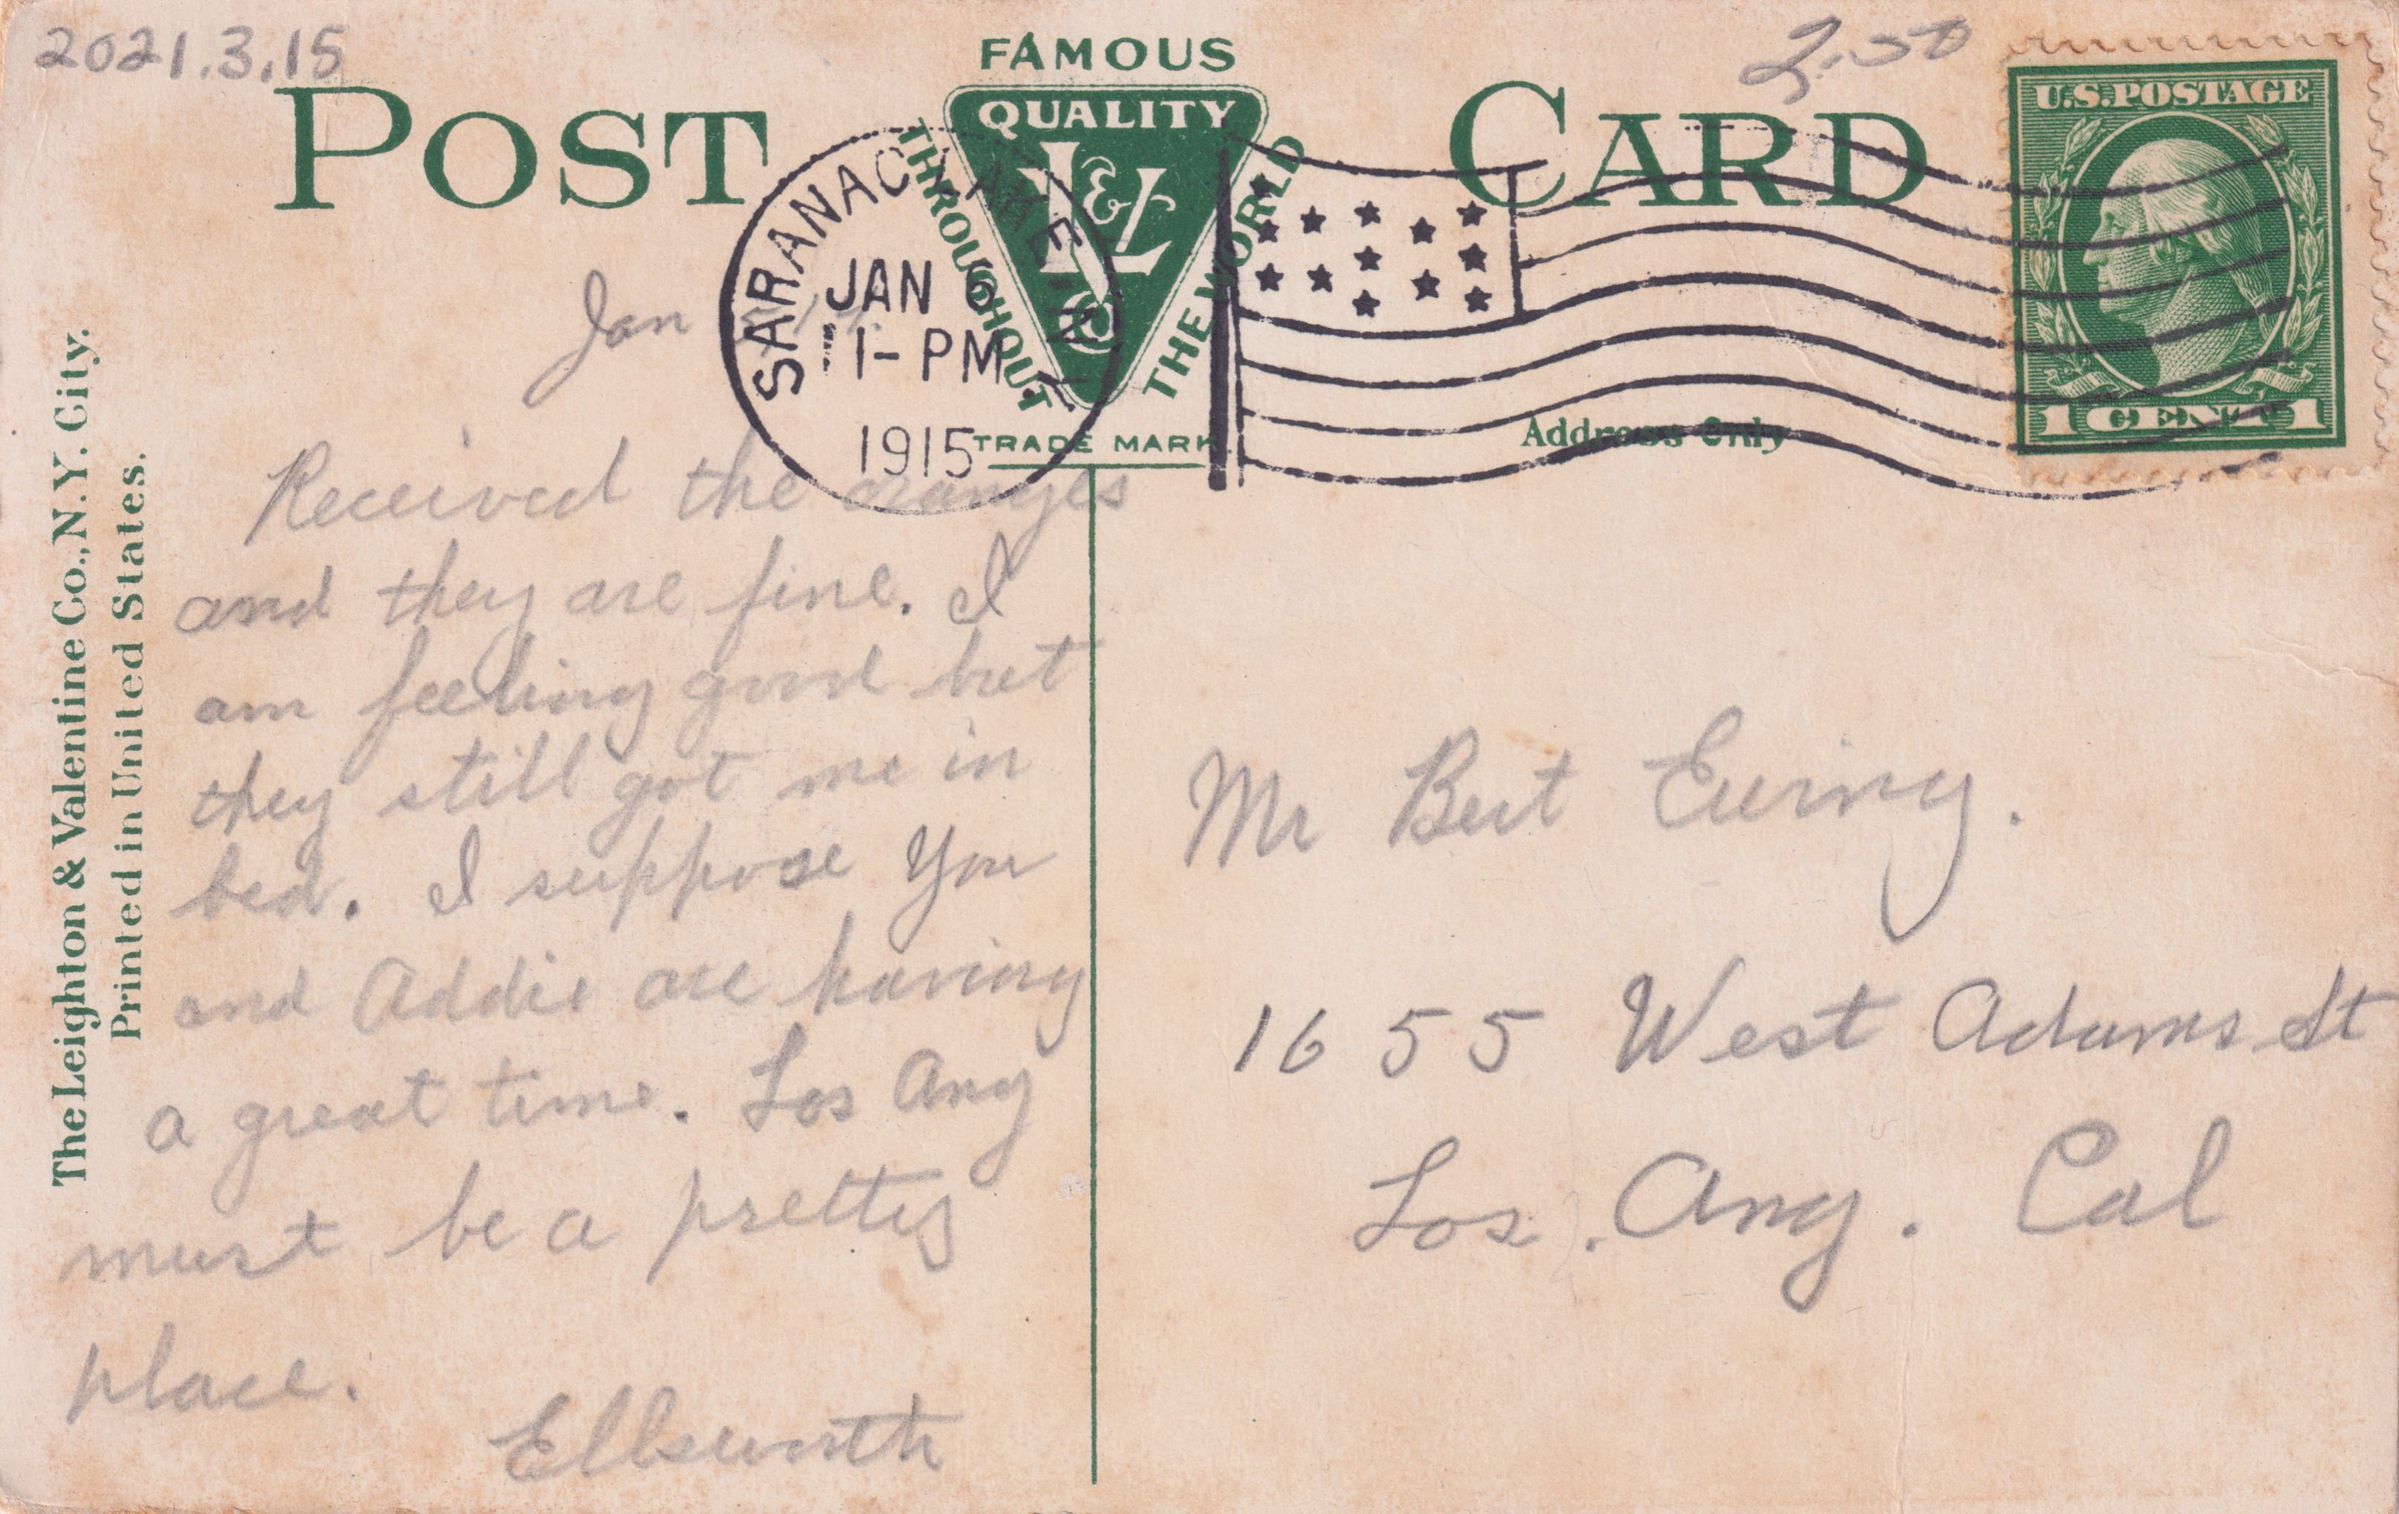 2021.3.15
2.50
FAMOUS
QUALITY
L&V
Co
THROUGHOUT
THE WORLD
TRADE MARK
POST CARD
Address Only
U.S. POSTAGE
1 CENT 1
SARANAC LAKE N.Y.
JAN 6
1-PM
1915
The Leighton & Valentine Co., N.Y. City.
Printed in United States.
Jan
Received the oranges
and they are fine. I
am feeling good but
they still got me in
bed. I suppose you
and Addie are having
a great time. Los Ang
must be a pretty
place.
Ellsworth
Mr Bert Ewing.
1655 West Adams St
Los. Ang. Cal